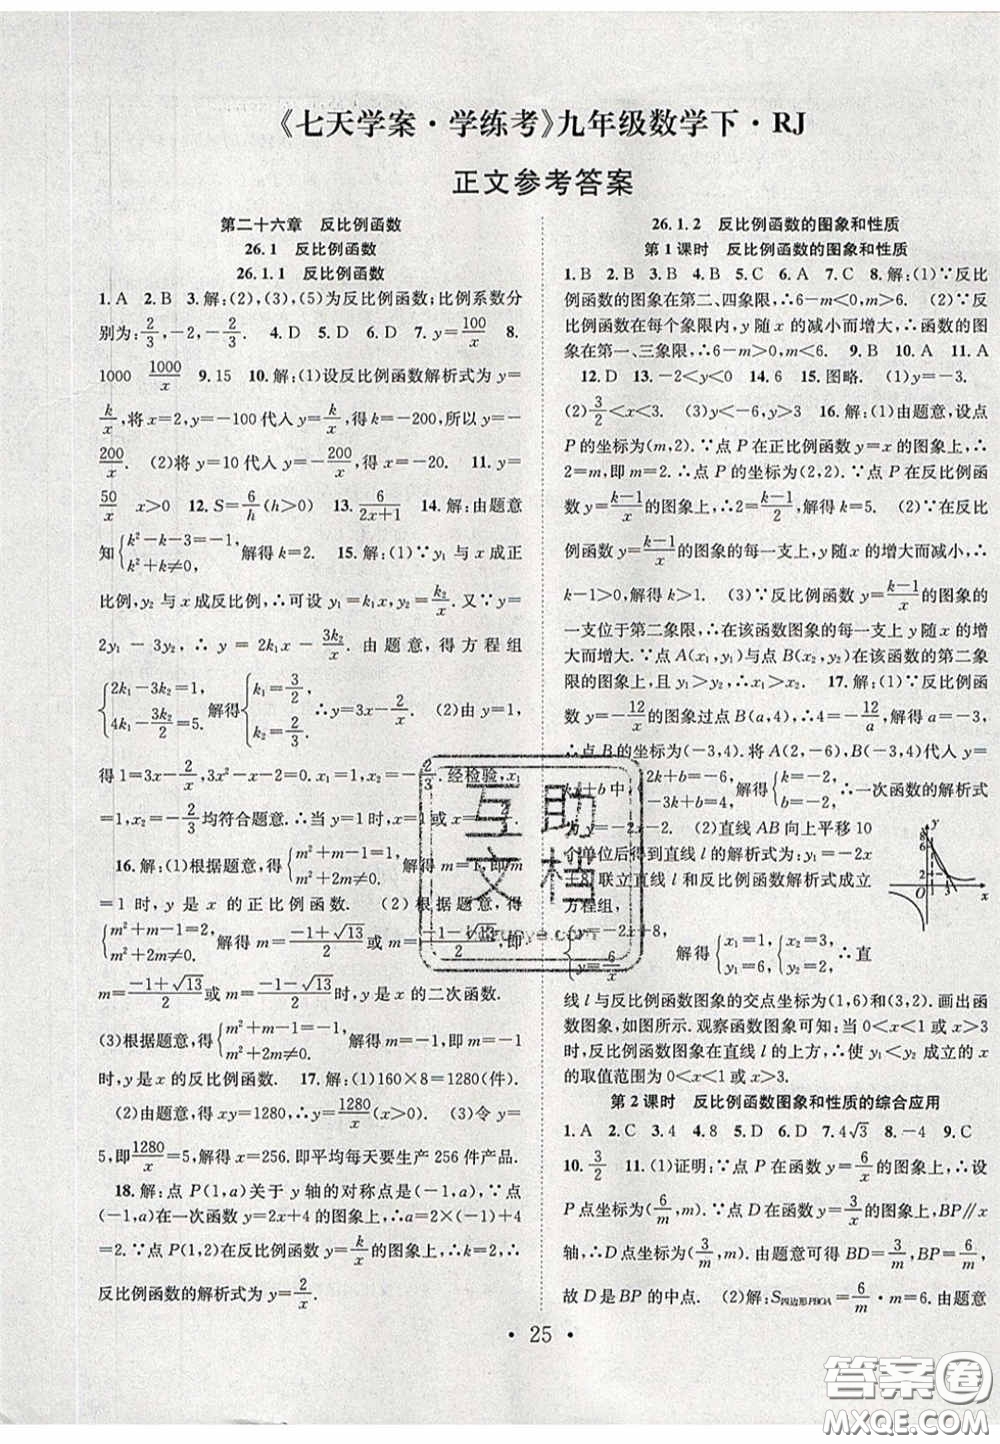 《七天学案·学练考》九年级数学下·RJ
正文参考答案
第二十六章 反比例函数
26.1 反比例函数
26.1.1 反比例函数
1.A 2.B 3.解:(2),(3),(5)为反比例函数;比例系数分
别为:2/3,-2,-2/3. 4.D 5.D 6.D 7.y=100/x 8.
1000 1000/x 9.15 10.解:(1)设反比例函数解析式为 y=
k/x,将 x=2,y=-100代入 y=k/x,得 k=-200,所以 y=-
200/x. (2)将 y=10代入 y=-200/x,得 x=-20. 11.y=
50/x x>0 12.S=6/h(h>0) 13.6/(2x+1) 14.解:由题意
知{k²-k-3=-1, k²+k≠0, 解得 k=2. 15.解:(1)∵y₁ 与 x 成正
比例,y₂ 与 x 成反比例,∴可设 y₁=k₁x,y₂=k₂/x.又∵y=
2y₁-3y₂,∴ y=2k₁x-3k₂/x. 由题意,得方程组
{2k₁-3k₂=1, 4k₁-3k₂/2=5. 解得{k₁=3/2, k₂=2/3. ∴y=3x-2/x. (2)由 y=1,
得 1=3x-2/x,3x²-x-2=0. x₁=1,x₂=-2/3.经检验,x₁
=1,x₂=-2/3均符合题意.∴当 y=1 时,x=1 或 x=-2/3.
16.解:(1)根据题意,得{m²+m-1=1, m²+2m≠0, 解得 m=1,即 m
=1 时,y 是 x 的正比例函数. (2)根据题意,得
{m²+m-1=2, m²+2m≠0, 解得 m=(-1+√13)/2或 m=(-1-√13)/2,即
m=(-1+√13)/2或 m=(-1-√13)/2时,y 是 x 的二次函数.
(3)根据题意,得{m²+m-1=-1, m²+2m≠0, 解得 m=-1,即 m=-1
时,y 是 x 的反比例函数. 17.解:(1)160×8=1280(件).
(2)由题意,得 xy=1280,∴y=1280/x(x>0). (3)令 y=
5,即1280/x=5,解得 x=256.即平均每天要生产 256 件产品.
18.解:点 P(1,a)关于 y 轴的对称点是(-1,a),∵点
(-1,a)在一次函数 y=2x+4 的图象上,∴a=2×(-1)+4
=2.∵点 P(1,2)在反比例函数 y=k/x的图象上,∴k=2,∴
反比例函数的解析式为 y=2/x.
26.1.2 反比例函数的图象和性质
第 1 课时 反比例函数的图象和性质
1.B 2.B 3.C 4.A 5.D 6.C 7.C 8.解:(1)∵反比
例函数的图象在第二、四象限,∴6-m<0,∴m>6. (2)∵反
比例函数在每个象限内,y 随 x 的减小而增大,∴函数的图
象在第一、三象限,∴6-m>0,∴m<6. 9.B 10.A 11.A
12.D 13.-2<y<0 14.6 15.图略. (1)y=-3.
(2)3/2<x<3. (3)y<-6,y>3 16.解:(1)由题意,设点
P 的坐标为(m,2).∵点 P 在正比例函数 y=x 的图象上,∴
2=m,即 m=2.∴点 P 的坐标为(2,2).∵点 P 在反比例函
数 y=(k-1)/x的图象上,∴2=(k-1)/2,解得 k=5. (2)∵在反比
例函数 y=(k-1)/x的图象的每一支上,y 随 x 的增大而减小,∴
k-1>0,解得 k>1. (3)∵反比例函数 y=(k-1)/x的图象的
一支位于第二象限,∴在该函数图象的每一支上 y 随 x 的增
大而增大.∵点 A(x₁,y₁)与点 B(x₂,y₂)在该函数的第二象
限的图象上,且 y₁>y₂,∴x₁>x₂. 17.解:(1)∵反比例函
数 y=-12/x的图象过点 B(a,4),∴4=-12/a,解得 a=-3,
∴点 B 的坐标为(-3,4).将 A(2,-6),B(-3,4)代入 y=
kx+b 中,{2k+b=-6, -3k+b=4, 解得{k=-2, b=-2, ∴一次函数的解析式
为 y=-2x-2. (2)直线 AB 向上平移 10
个单位后得到直线 l 的解析式为:y=-2x
+8.联立直线 l 和反比例函数解析式成立
方程组,
{y=-2x+8, y=6/x 解得{x₁=1, y₁=6, {x₂=3, y₂=2, ∴直
线 l 与反比例函数图象的交点坐标为(1,6)和(3,2).画出函
数图象,如图所示.观察函数图象可知:当 0<x<1 或 x>3
时,反比例函数图象在直线 l 的上方,∴使 y₁<y₂ 成立的 x
的取值范围为 0<x<1 或 x>3.
y
8
6
O 1 3 x
第 2 课时 反比例函数图象和性质的综合应用
1.A 2.C 3.4 4.8 5.D 6.D 7.4√3 8.-4 9.C
10.3/2 11.(1)证明:∵点 P 在函数 y=6/x的图象上,∴设
P 点坐标为(6/m,m).∵点 D 在函数 y=3/x的图象上,BP∥x
轴,∴D 点坐标为(3/m,m).由题意可得 BD=3/m,BP=6/m,
故 D 是 BP 的中点. (2)解:S四边形PBOA=6/m·m=6.由题意
·25·
互助文档
答案圈
MXQE.COM